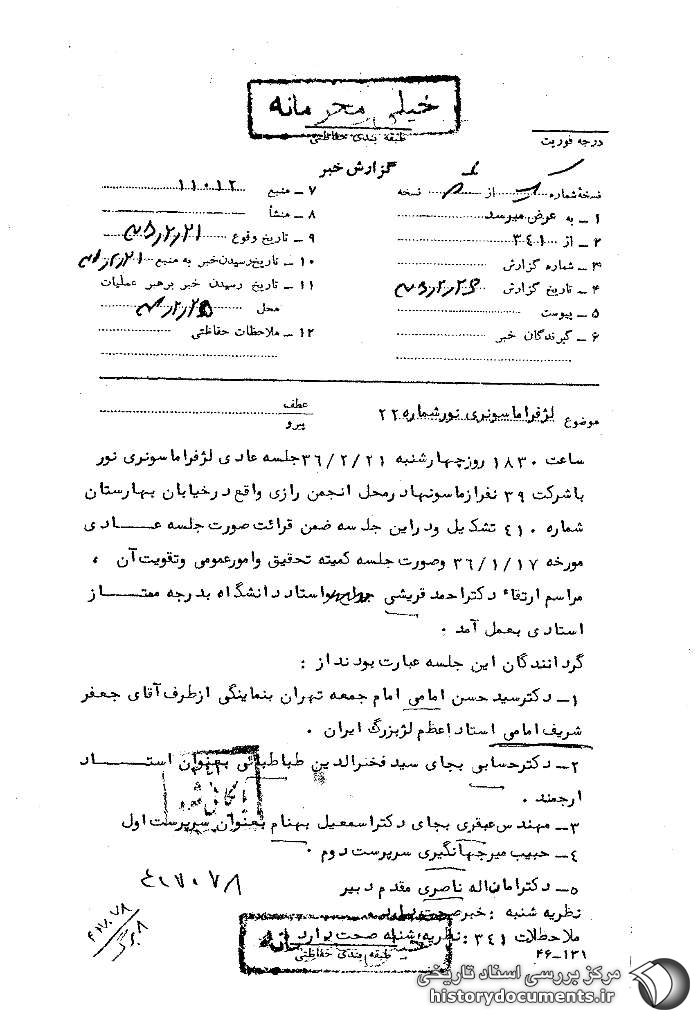 خیلی محرمانه
طبقه بندی حفاظتی
درجه فوریت
گزارش خبر
نسخهٔ شماره از نسخه
۱ – به عرض میرسد
۲ – از ۳٤۱
۳ – شماره گزارش
۴ – تاریخ گزارش
۵ – پیوست
۶ – گیرندگان خبر
۷ – منبع ۱۱۰۱۲
۸ – منشأ
۹ – تاریخ وقوع
۱۰ – تاریخ رسیدن خبر به منبع
۱۱ – تاریخ رسیدن خبر برهبر عملیات
محل
۱۲ – ملاحظات حفاظتی
موضوع لژفراماسونری نورشماره ۲۲
عطف
پیرو
ساعت ۱۸۳۰ روزچهارشنبه ۳۶/۲/۲۱ جلسه عادی لژفراماسونری نور
باشرکت ۳۹ نفرازماسونها در محل انجمن رازی واقع درخیابان بهارستان
شماره ٤۱۰ تشکیل ودراین جلسه ضمن قرائت صورت جلسه عادی
مورخه ۳۶/۱/۱۷ وصورت جلسه کمیته تحقیق وامورعمومی وتقویت آن ،
مراسم ارتقاء دکتراحمد قریشی استاد دانشگاه بدرجه ممتاز
استادی بعمل آمد .
گردانندگان این جلسه عبارت بودنداز :
۱– دکترسید حسن امامی امام جمعه تهران بنماینگی ازطرف آقای جعفر
شریف امامی استاد اعظم لژبزرگ ایران .
۲– دکترحسابی بجای سید فخرالدین طباطبائی بعنوان استاد
ارجمند .
۳– مهندس عبقری بجای دکتراسمعیل بهنام بعنوان سرپرست اول
۴– حبیب میرجهانگیری سرپرست دوم .
۵– دکترامان اله ناصری مقدم دبیر
نظریه شنبه : خبرصحت دارد
ملاحظات ۳٤۱ : نظریه شنبه صحت دارد
۴۶–۱۳۱
طبقه بندی حفاظتی
مرکز بررسی اسناد تاریخی
historydocuments.ir